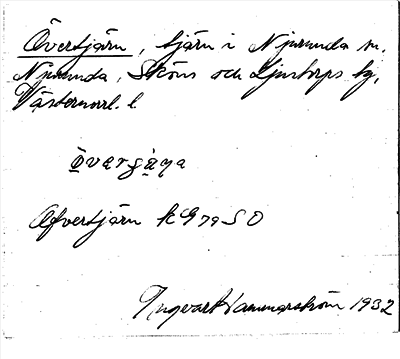 Övertjärn, tjärn i Njurunda sn.
Njurunda, Sköns och Ljustorps tg,
Västernorrl. l
Övergàṇa
Öfvertjärn k G 79 S O
Ingvar Hammarström 1932